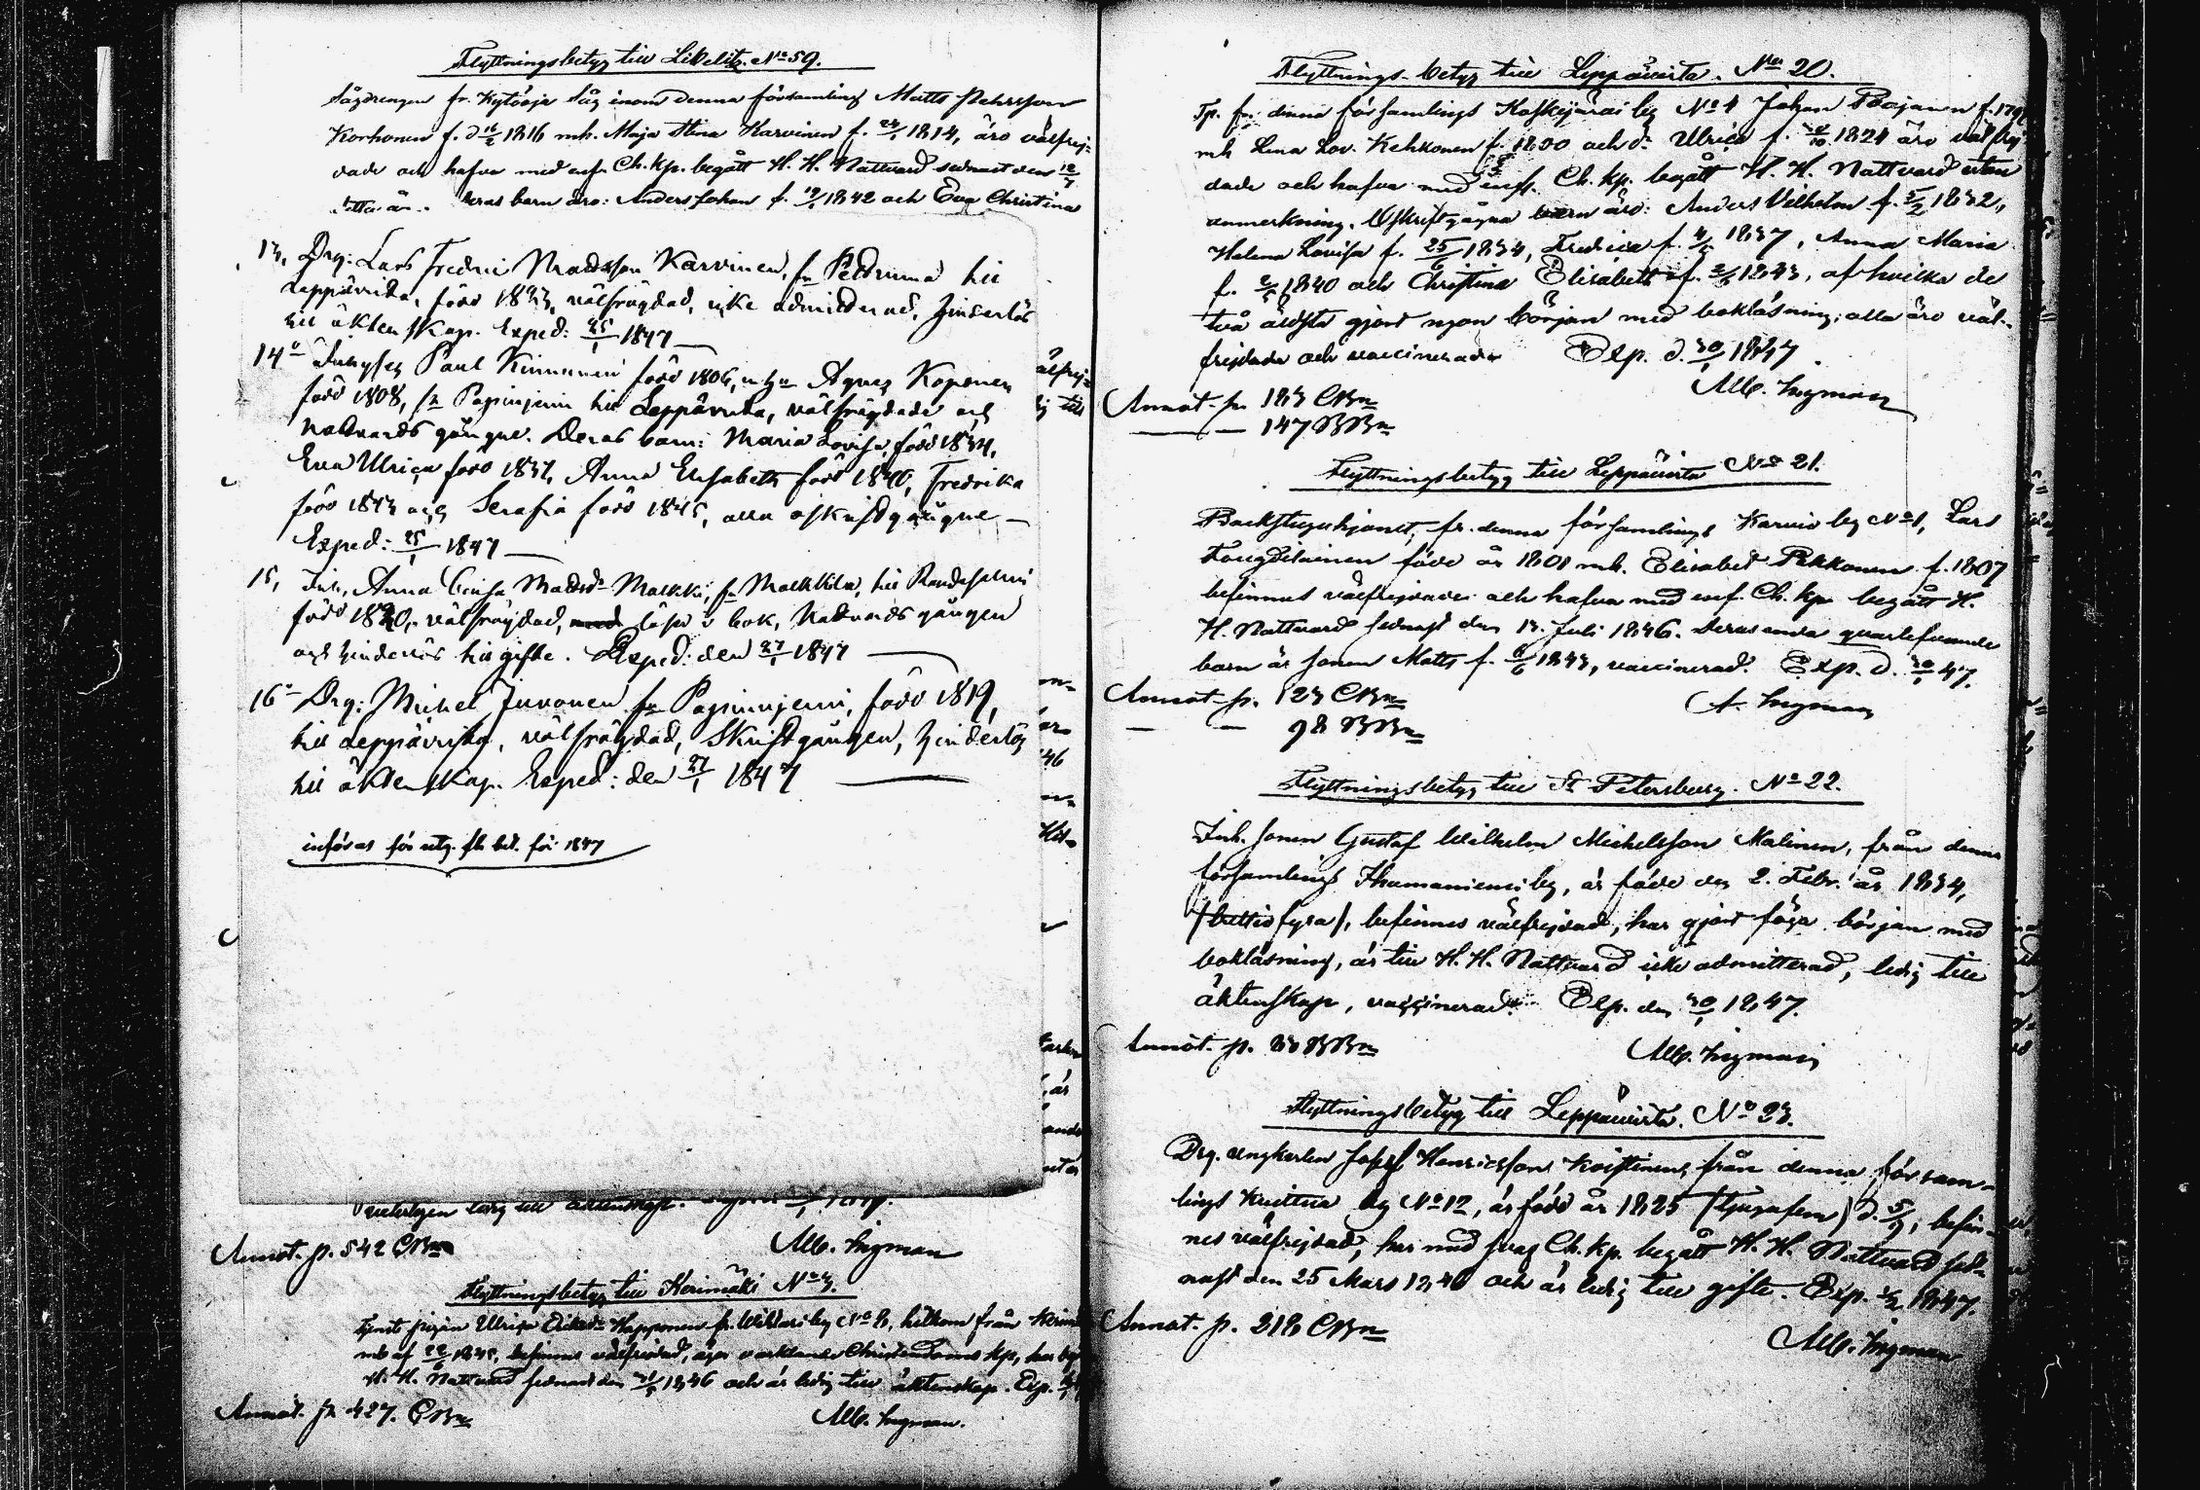 Flyttningsbetyg till Libelitz. No 59.
Sågdrengen fr. Kytöoja Såg inom denna församling Matts Pehrsson
Korhonen f. d 16/2 1816 mh. Maja Stina Karvinen f. 24/1 1814, äro välfrej-
dade och hafva med enf. Ch. kp. begått H. H. Nattvard sednast den 12/7
detta år. Deras barn äro: Anders Johan f. 19/1 1842 och Eva Christina
13, Drg: Lars Fredric Madsson Karvinen, fr. till
Leppävirta, född 1823, välfrägdad, icke admitterad, hinderlös
till äktenskap. Exped: 25/1 1847
14o Inhyses Paul Kinnunen född 1806, Agnes Koponen
född 1808, fr. Papinjemi till Leppävirta, välfrägdade och
Nattvards gångne. Deras barn: Maria Lovisa född 1834,
Eva Ulrica född 1837, Anna Elisabeth född 1840, Fredrika
född 1843 och Serafia född 1845, alla oskriftgångne
Exped: 25/1 1847
15, Inh. Anna Mattsdr Markki, fr. till
född 1820, välfräjdad, läser i bok, Nattvards gången
och hinderlös till gifte. Exped: den 27/1 1847
16o Drg: Michel Juvonen fr. Papinnjemi, född 1819,
till Leppävirta, välfrägdad, Skriftgången, hinderlös
till äktenskap. Exped: den 27/1 1847
införas för utg. fl. bet. för 1847
ledig till äktenskap.
Annot. p. 542 CBn Alb. Ingman
Flyttningsbetyg till Kerimäki No 3.
Tjenste pigan Ulrica Ericsdr Happonen fr. by No 8, hitkom från Kerimä
befinnes välfrejdad, äger Christendoms kp, har beg
H. H. Nattvard sednast den 1846 och är ledig till äktenskap. Exp.
Annot. p. 427. CBn Alb. Ingman.
Flyttnings-betyg till Leppävirta. No 20.
Tp. fr. denna församlings Koskijärvi by No 4 Johan Pajanen f. 179
mh Lena Lov. Kekkonen f. 1800 och dr Ulrica f. 1824 äro välfrej
dade och hafva med enf. Ch. kp. begått H. H. Nattvard utan
anmerkning. Oskriftgågna barn äro: Anders Vilhelm f. 1832,
Helena Lovisa f. 25/6 1834, Fredica f. 1837, Anna Maria
f. 1840 och Christina Elisabeth f. 1843, af hvilka de
två äldsta gjort ngon början med bokläsning; alla äro väl-
frejdade och vaccinerade Exp. d. 30/1 1847.
Alb. Ingman
Annot. p. 183 CBn
— — 147 BBn
Flyttningsbetyg till Leppävirta No 21.
Backstuguhjonet, fr. denna församlings Karvio by No 1, Lars
född år 1801 mh. Elisabet Pekkonen f. 1807
befinnas välfrejdade och hafva med enf. Ch. kp. begått H.
H. Nattvard sednast den 13. Juli 1846. Deras enda qvarlefvande
barn är sonen Matts f. 1843, vaccinerad. Exp. d. 30/1 47.
A. Ingman
Annot. p. 123 CBn
— — 98 BBn
Flyttningsbetyg till St Petersburg. No 22.
Inh. sonen Gustaf Wilhelm Michelsson Malinen, från denna
församlings by, är född den 2. Febr. år 1834,
/trettiofyra/, befinnes välfrejdad, har gjort föga början med
bokläsning, är till H. H. Nattvard icke admitterad, ledig till
äktenskap, vaccinerad. Exp. den 30/1 1847.
Annot. p. BBn Alb. Ingman
Flyttningsbetyg till Leppävirta. No 23.
Drg. ungkarlen Josef Henricsson Koistinen, från denna försam-
lings by No 12, är född år 1825 (tjugufem) d. 5/9, befin-
nes välfrejdad, har med svag Ch. kp. begått H. H. Nattvard sed-
nast den 25 Mars 1846 och är ledig till gifte. Exp. 1847.
Annot. p. 218 CBn
Alb. Ingman